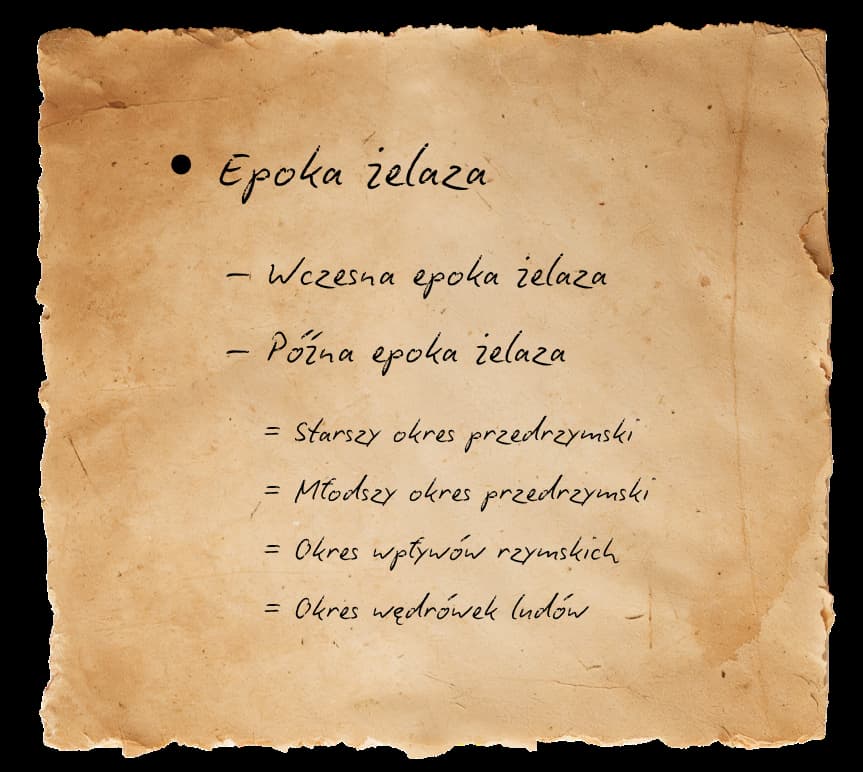 • Epoka żelaza
– Wczesna epoka żelaza
– Późna epoka żelaza
= Starszy okres przedrzymski
= Młodszy okres przedrzymski
= Okres wpływów rzymskich
= Okres wędrówek ludów